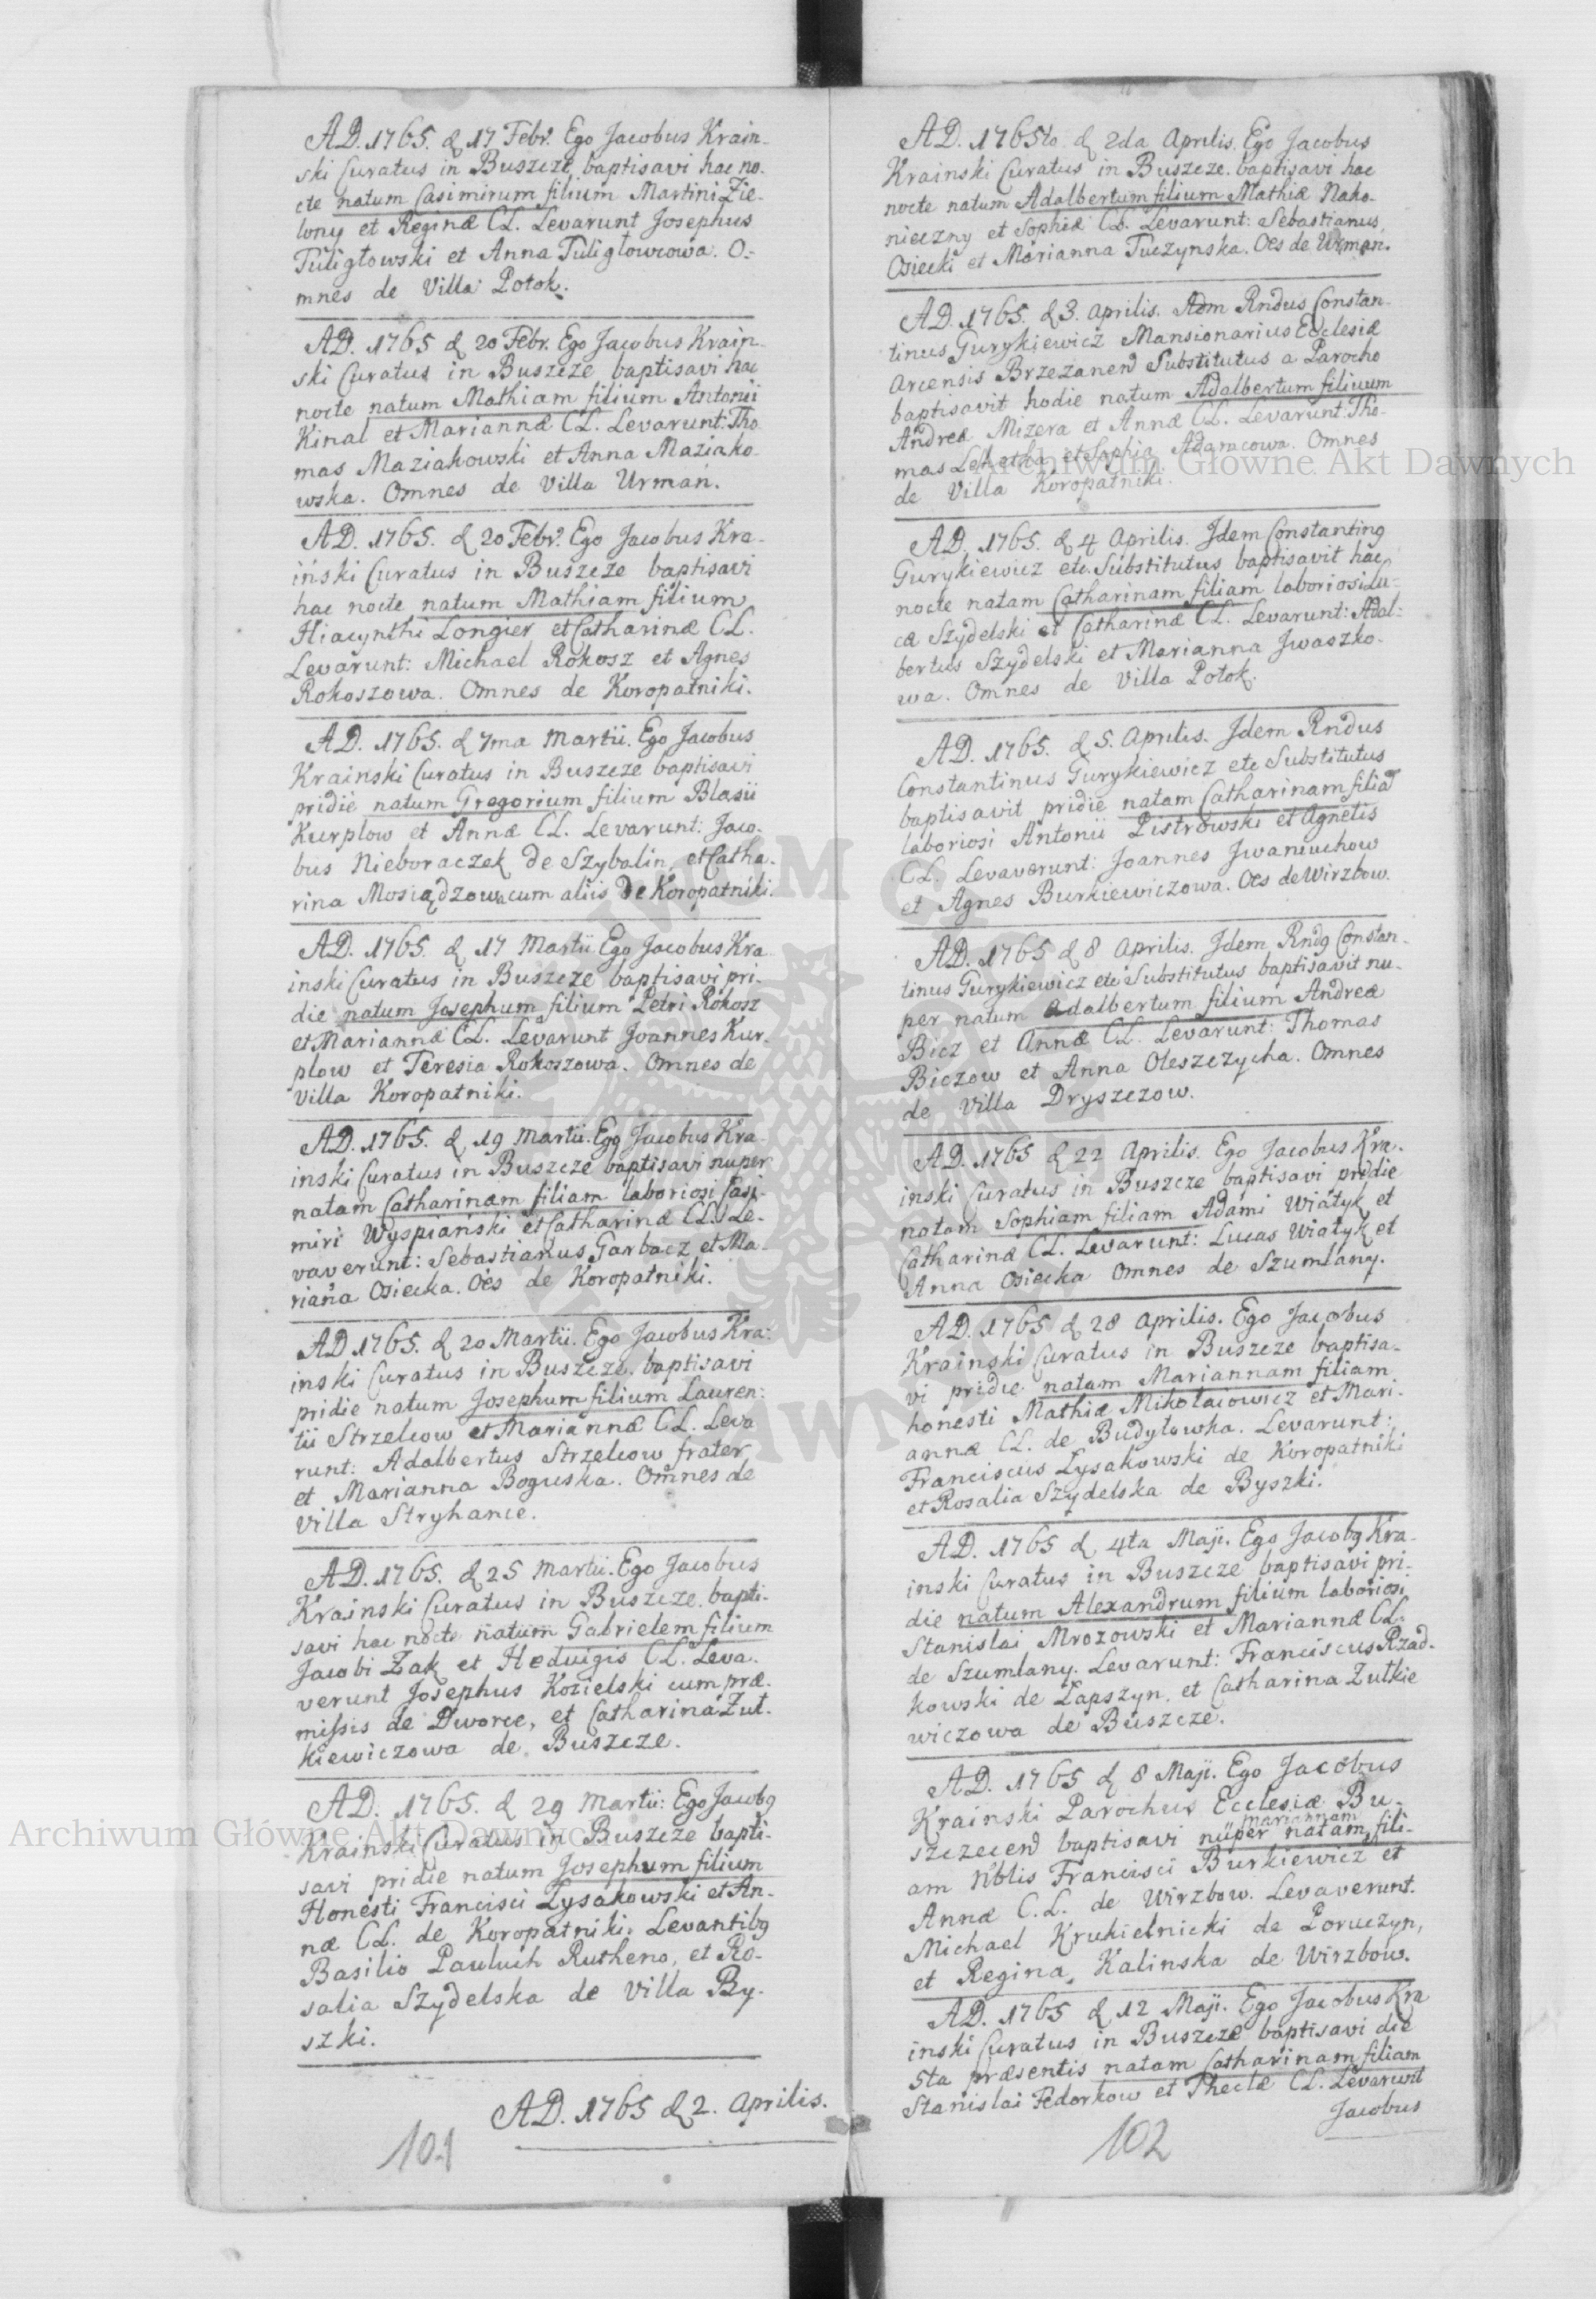 AD. 1765. d 17 Febr. Ego Jacobus Krain-
ski Curatus in Buszcze baptisavi hac no-
cte natum Casimirum filium Martini Zie-
lony et Reginæ CL. Levarunt Josephus
Tuligłowski et Anna Tuligłowiowa. O-
mnes de Villa Potok.
AD. 1765 d 20 Febr. Ego Jacobus Krain-
ski Curatus in Buszcze baptisavi hac
nocte natum Mathiam filium Antonii
Kinal et Mariannæ CL. Levarunt: Tho-
mas Maziakowski et Anna Maziako-
wska. Omnes de Villa Urmań.
AD. 1765. d 20 Febr. Ego Jacobus Kra-
iński Curatus in Buszcze baptisavi
hac nocte natum Mathiam filium
Hiacynthi Longier et Catharinæ CL.
Levarunt: Michael Rokosz et Agnes
Rokoszowa. Omnes de Koropatniki.
AD. 1765. d 7ma Martii. Ego Jacobus
Krainski Curatus in Buszcze baptisavi
pridie natum Gregorium filium Blasii
Kurplow et Annæ CL. Levarunt: Jaco-
bus Nieboraczek de Szybalin, et Catha-
rina Mosiądzowa cum aliis de Koropatniki.
AD. 1765. d 17 Martii. Ego Jacobus Kra-
inski Curatus in Buszcze baptisavi pri-
die natum Josephum filium Petri Rokosz
et Mariannæ CL. Levarunt Joannes Kur-
plow et Teresia Rokoszowa. Omnes de
Villa Koropatniki.
AD. 1765. d 19 Martii. Ego Jacobus Kra-
inski Curatus in Buszcze baptisavi nuper
natam Catharinam filiam laboriosi Casi-
miri Wyspiański et Catharinæ CL. Le-
vaverunt: Sebastianus Garbacz et Ma-
riaña Osiecka. Oes de Koropatniki.
AD 1765. d 20 Martii. Ego Jacobus Kra-
inski Curatus in Buszcze. baptisavi
pridie natum Josephum filium Lauren-
tii Strzelcow et Mariannæ CL. Leva
runt: Adalbertus Strzelcow frater
et Marianna Boguska. Omnes de
Villa Stryhance.
AD. 1765. d 25 Martii. Ego Jacobus
Krainski Curatus in Buszcze. bapti-
savi hac nocte natum Gabrielem filium
Jacobi Zak et Hedvigis CL. Leva-
verunt Josephus Kozielski cum præ-
missis de Dworce, et Catharina Zuł-
kiewiczowa de Buszcze.
AD. 1765. d 29 Martii: Ego Jacobg
Krainski Curatus in Buszcze bapti-
savi pridie natum Josephum filium
Honesti Francisci Lysakowski et An-
næ CL. de Koropatniki. Levantibg
Basilio Pauluch Rutheno, et Ro-
salia Szydelska de Villa By-
szki.
AD. 1765 d 2. Aprilis.
101
AD. 1765to. d 2da Aprilis. Ego Jacobus
Krainski Curatus in Buszcze. baptisavi hac
nocte natum Adalbertum filium Mathiæ Nako-
nieczny et Sophiæ CL. Levarunt: Sebastianus
Osiecki et Marianna Tuczynska. Oes de Urman.
AD. 1765. d 3. Aprilis. Adm Rndus Constan-
tinus Gurykiewicz Mansionarius Ecclesiæ
Arcensis Brzezanen Substitutus a Parocho
baptisavit hodie natum Adalbertum filium
Andreæ Mizera et Annæ CL. Levarunt: Tho-
mas et Sophia Adamcowa. Omnes
de Villa Koropatniki.
AD. 1765. d 4 Aprilis. Idem Constanting
Gurykiewicz etc. Substitutus baptisavit hac
nocte natam Catharinam filiam laboriosi Lu-
cæ Szydelski et Catharinæ CL. Levarunt: Adal-
bertus Szydelski et Marianna Jwaszko-
wa. Omnes de Villa Potok.
AD. 1765. d 5. Aprilis. Idem Rndus
Constantinus Gurykiewicz etc Substitutus
baptisavit pridie natam Catharinam filiã
laboriosi Antonii Pistrowski et Agnetis
CL. Levaverunt: Joannes Jwaniuchow
et Agnes Burkiewiczowa. Oes de Wirzbow.
AD. 1765 d 8 Aprilis. Idem Rndg Constan-
tinus Gurykiewicz etc Substitutus baptisavit nu-
per natum Adalbertum filium Andreæ
Bicz et Annæ CL. Levarunt: Thomas
Biczow et Anna Oleszczycha. Omnes
de Villa Dryszczow.
AD. 1765 d 22 Aprilis. Ego Jacobus Kra-
inski Curatus in Buszcze baptisavi pridie
natam Sophiam filiam Adami Wiątyk et
Catharinæ CL. Levarunt: Lucas Wiątyk et
Anna Osiecka Omnes de Szumlany.
AD. 1765 d 28 Aprilis. Ego Jacobus
Krainski Curatus in Buszcze baptisa-
vi pridie natam Mariannam filiam
honesti Mathiæ Mikołaiowicz et Mari-
annæ CL. de Budyłowka. Levarunt:
Franciscus Lysakowski de Koropatniki
et Rosalia Szydelska de Byszki.
AD. 1765 d 4ta Maji. Ego Jacobg Kra-
inski Curatus in Buszcze baptisavi pri-
die natum Alexandrum filium laboriosi
Stanislai Mrozowski et Mariannæ CL.
de Szumlany. Levarunt: Franciscus Rząd-
kowski de Łapszyn. et Catharina Zułkie
wiczowa de Buszcze.
AD. 1765 d 8 Maji. Ego Jacobus
Krainski Parochus Ecclesiæ Bu-
szczecen baptisavi nuper natam Mariannam fili-
am Nblis Francisci Burkiewicz et
Annæ C.L. de Wirzbow. Levaverunt.
Michael Krukielnicki de Poruczyn,
et Regina Kalinska de Wirzbow.
AD. 1765 d 12 Maji. Ego Jacobus Kra
inski Curatus in Buszcze baptisavi die
5ta præsentis natam Catharinam filiam
Stanislai Fedorkow et Theclæ CL. Levarunt
Jacobus
102
Archiwum Główne Akt Dawnych
Archiwum Główne Akt Dawnych